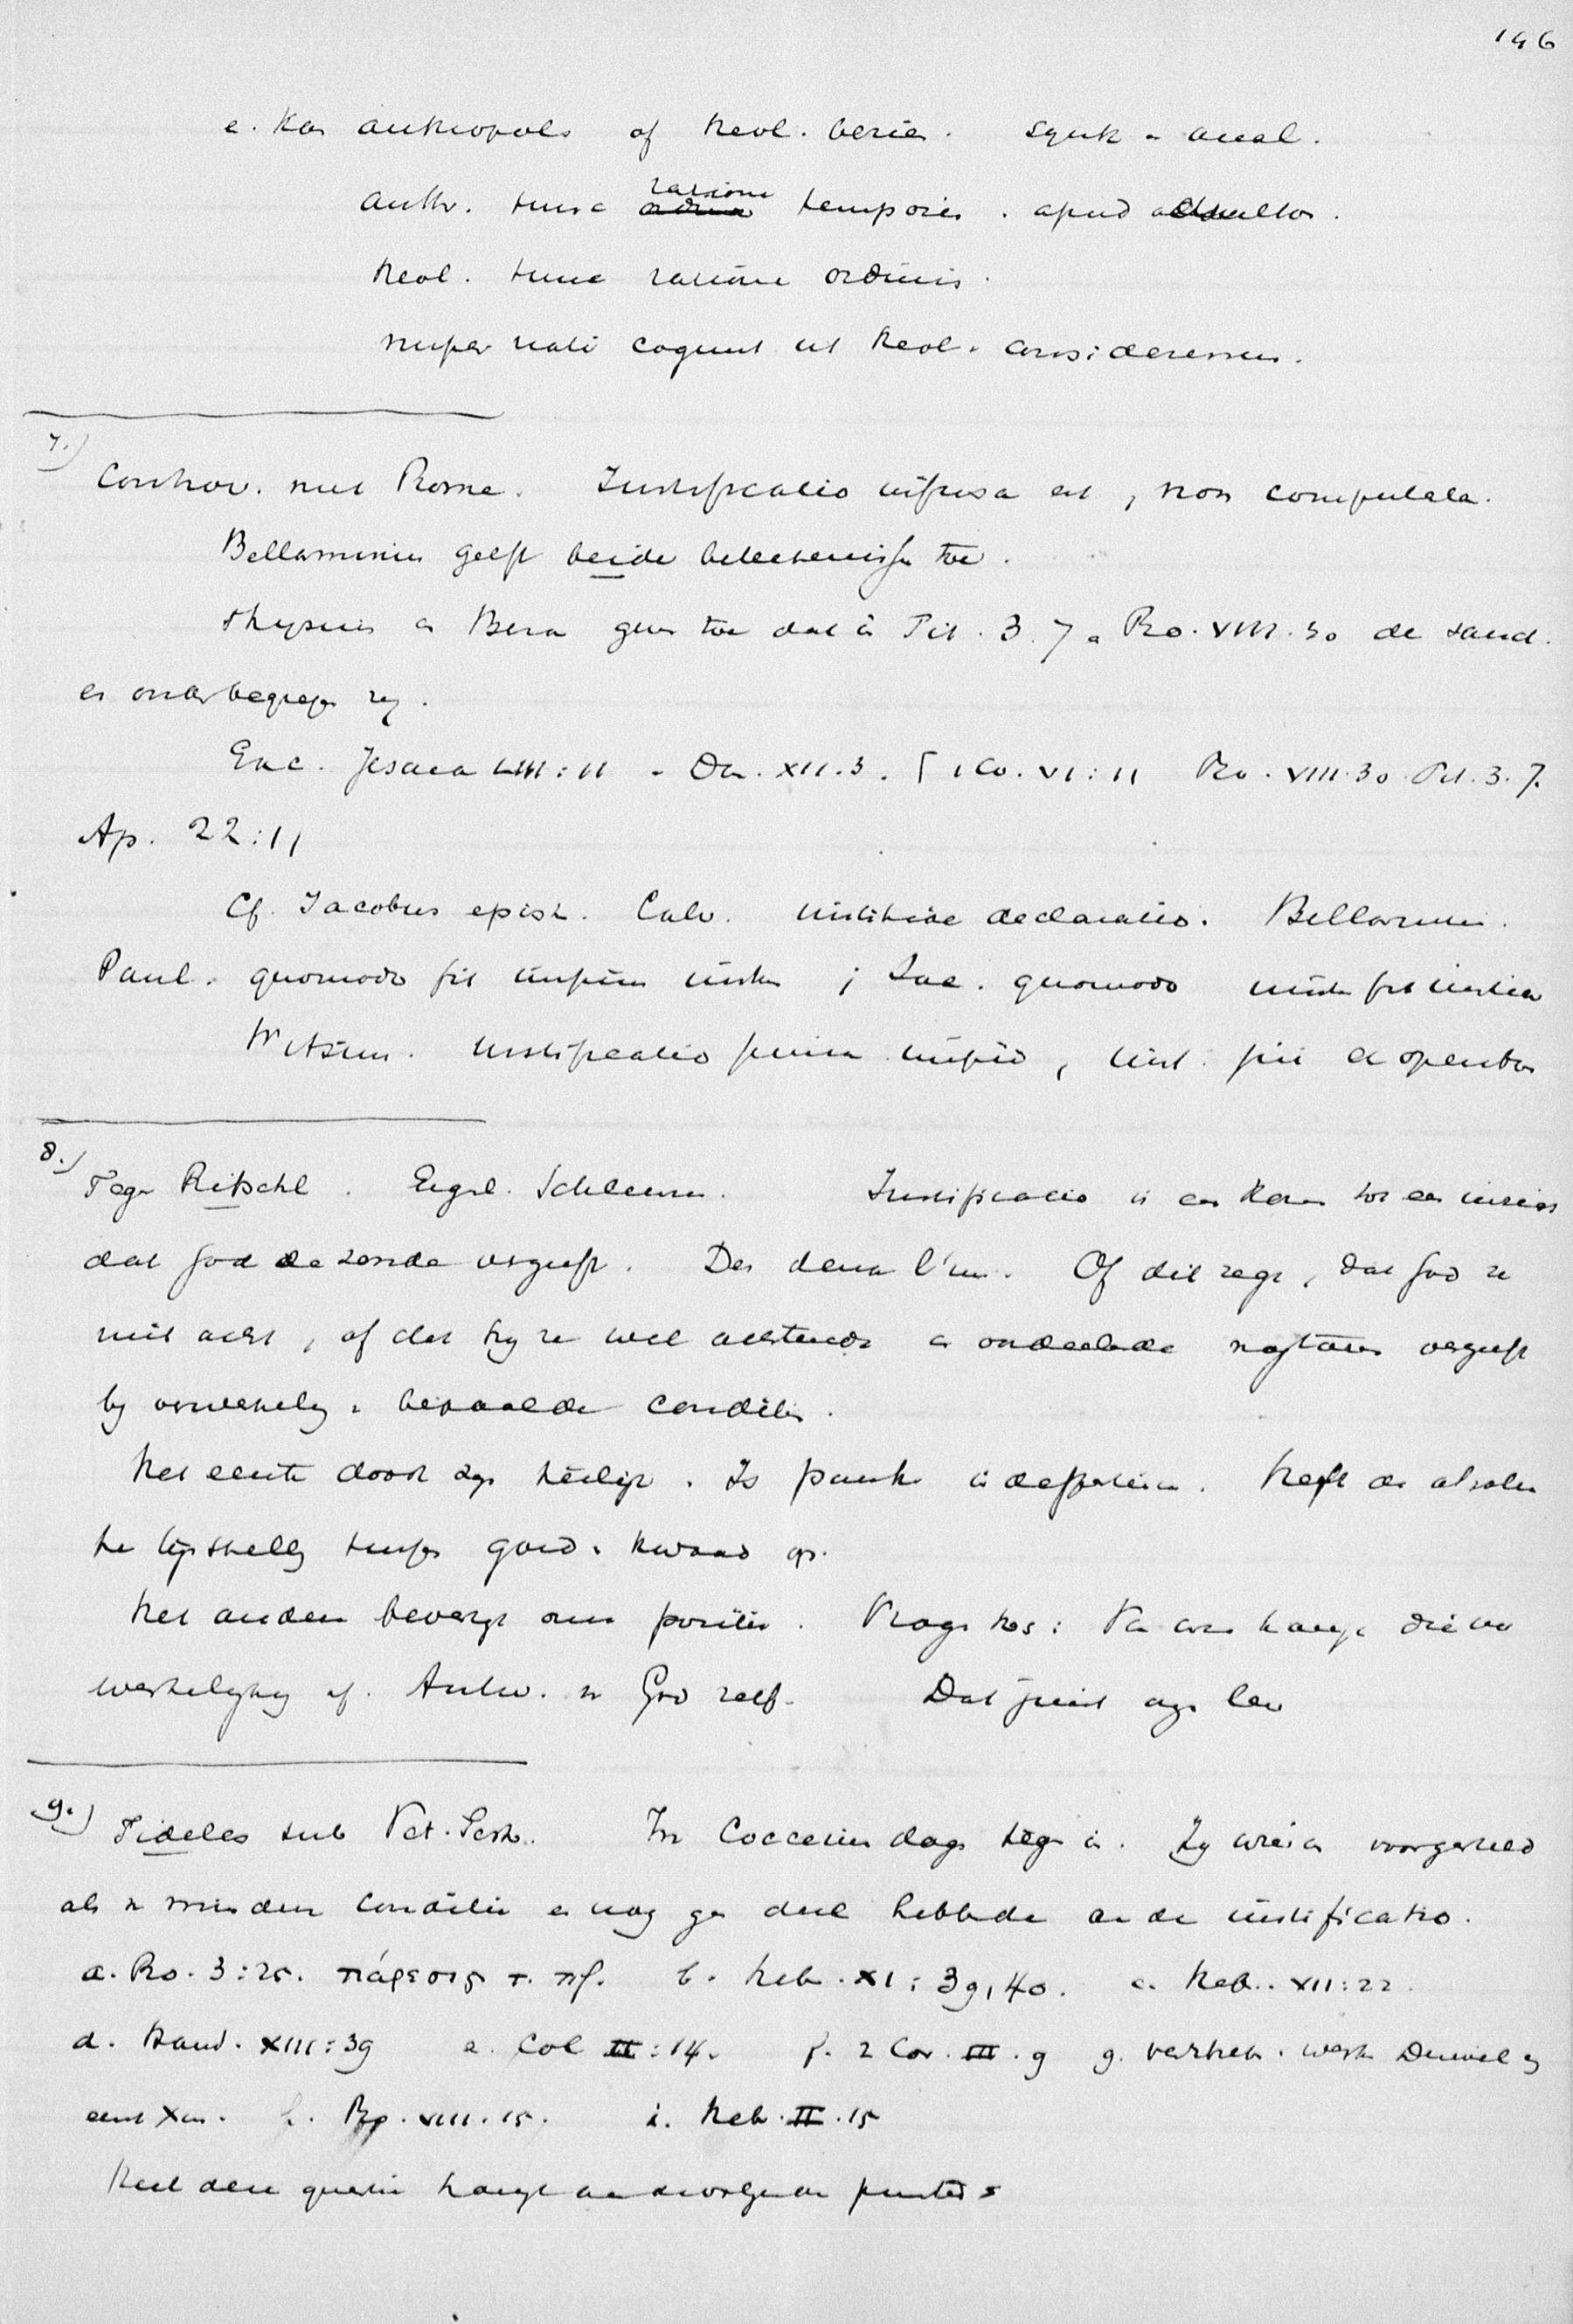 146
e. Kan anthropol. of theol. bezien. synth. - anal.
anthr. tunc ratione temporis. apud adultos.
theol. tunc ratione ordinis.
nuper nati cogunt ut theol. consideremus.
7.)
Controv. met Rome. Justificatio infusa est, non computata.
Bellarminus geeft beide beteekenissen toe.
Thysius en Beza geven toe dat in Tit. 3.7 en Ro. VIII.30 de sanct.
er onder begrepen zij.
Exc. Jesaea LIII:11 - Dan. XII.3. 1 Co. VI:11 Ro. VIII.30 Tit. 3.7.
Ap. 22:11
Cf. Jacobus epist. Calv. iustitiae declaratio. Bellarmin.
Paul. quomodo fit impius iustus; Jac. quomodo iustus fit iustior
Witsius. Iustificatio primum impio, iust. pii ex operibus
8.)
Tegen Ritschl. Engel. Schleierm. Justificatio is een komen tot een inzien
dat God de zonde vergeeft. Des dilemma. Of dit zegt, dat God ze
niet acht, of dat hij ze wel achtende en oordeelende nogtans vergeeft
bij verwezenlijking bepaalde conditie.
Het eerste doodt zijn heiligh. Is pantheïsme. Heft de absolu
te tegenstelling tusschen goed en kwaad op.
Het andere bevestigt onze positie. Vraagt nog: Van wien hangt die ver
werkelijking af. Antw. van God zelf. Dat juist onze leer
9.)
Fideles sub Vet. Test. In Coccejus dagen tegen in. Zij wierden voorgesteld
als in mindere conditie en nog geen deel hebbende aan de iustificatio.
a. Ro. 3:25. πάρεσις τ. πρ. b. Heb. XI:39,40. c. Heb. XII:22.
d. Hand. XIII:39 e. Col II:14. f. 2 Cor. III.9 g. werk Duivel
eerst Xus. h. Ro. VIII.15. i. Heb. II.15
Heel deze questie hangt aan punten